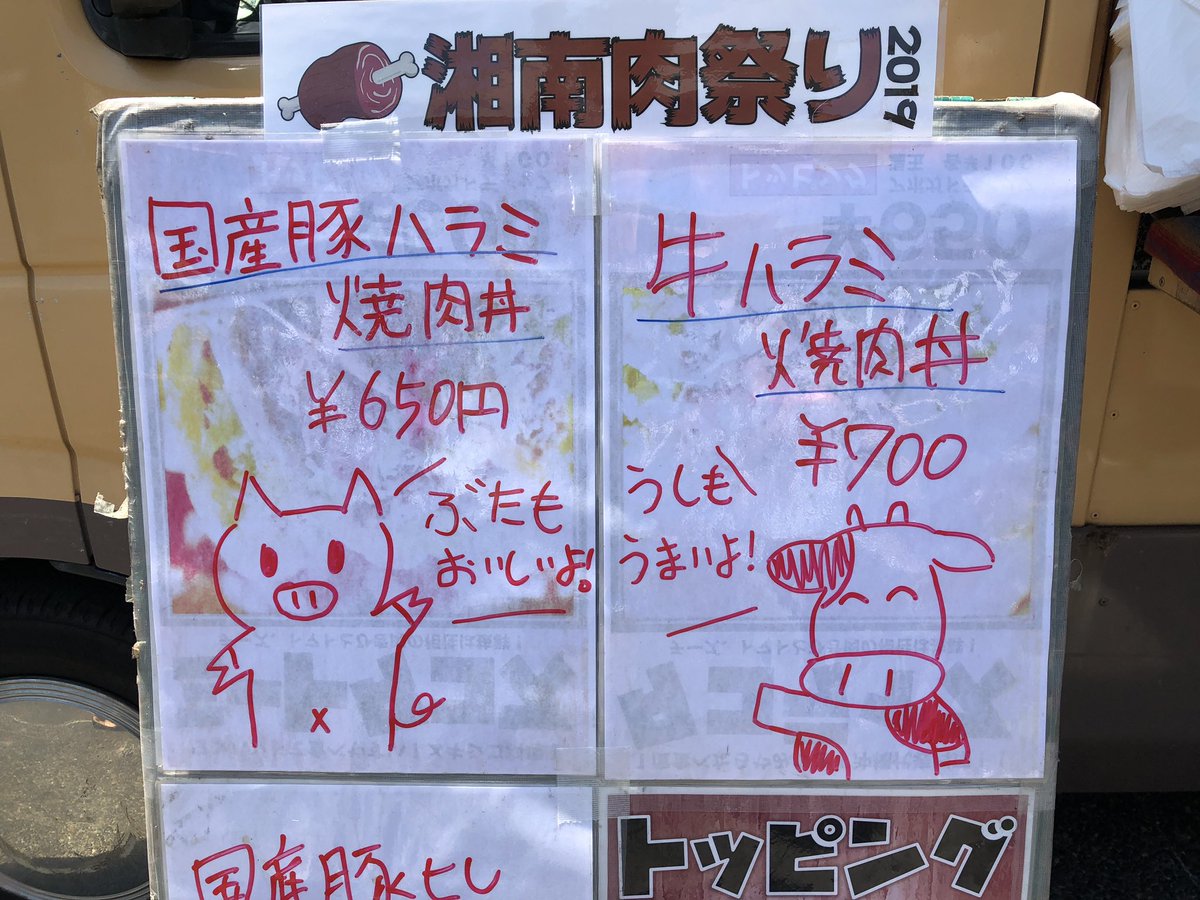 湘南肉祭り 2019
国産豚ハラミ
焼肉丼
¥650円
ぶたも
おいしいよ!
牛ハラミ
焼肉丼
¥700
うしも
うまいよ!
国産豚とし
トッピング